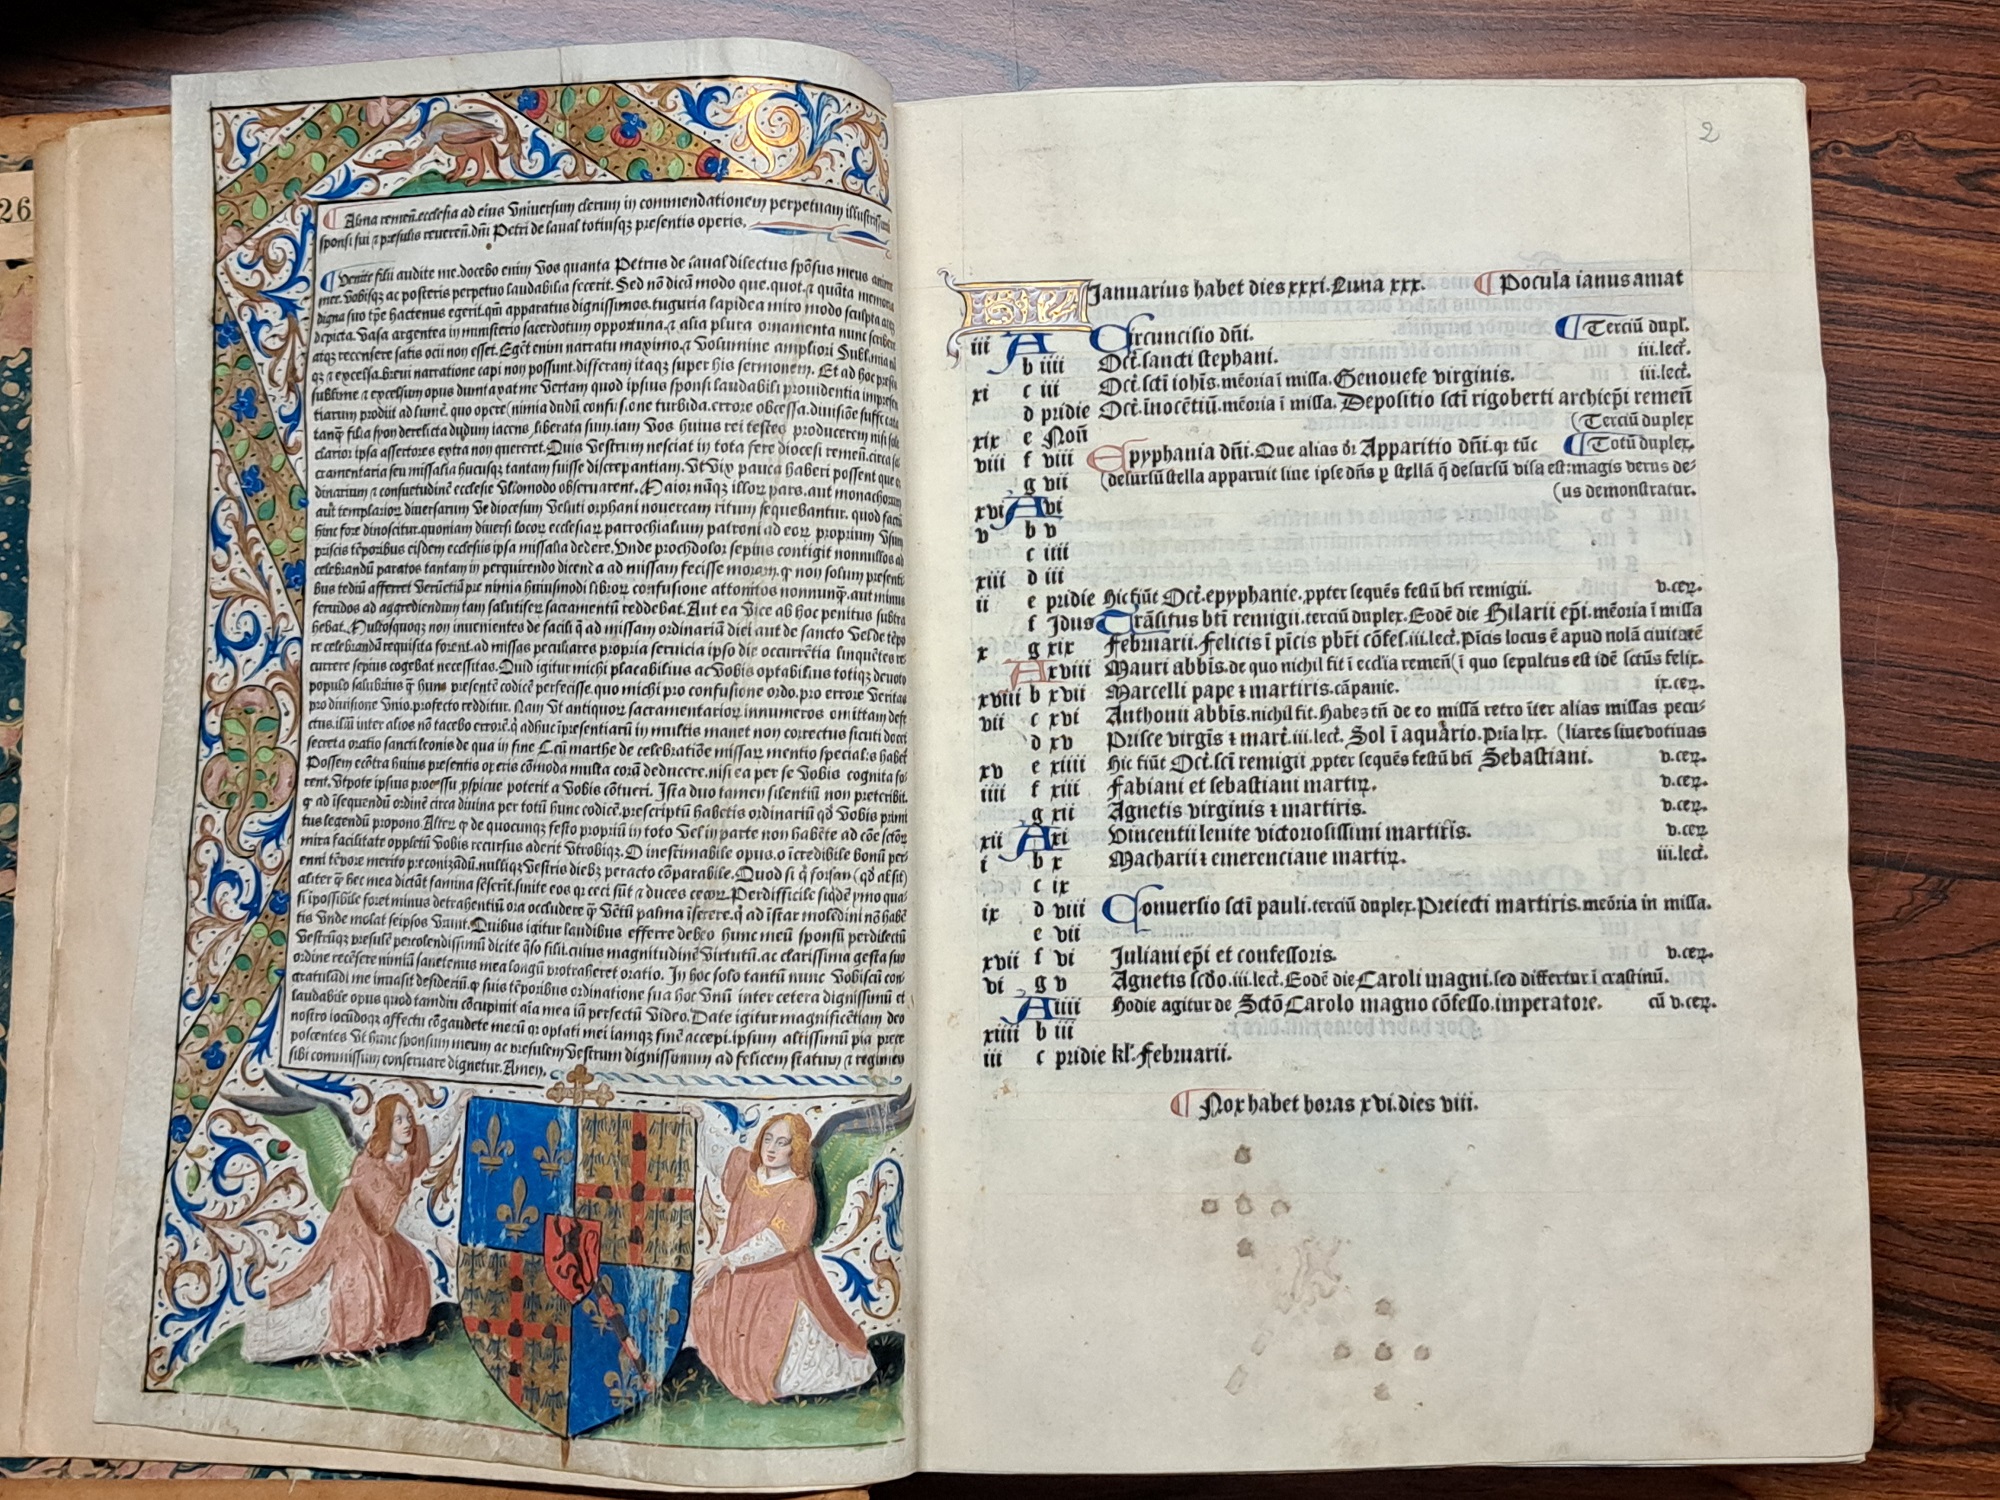 26
¶ Alma remeñ.ecclesia ad eius Vniuersum clerum in commendationem perpetuam
sponsi sui ⁊ presulis reuereñ.dñi Petri de laual totiusqꝫ presentis operis.
¶ Venite filii audite me.docebo enim Vos quanta Petrus de laual dilectus spõsus meus
Vobisqꝫ ac posteris perpetuo laudabilia fecerit. Sed nõ dicã modo que.quot.⁊ quãta
digna suo tp̃e hactenus egerit.qm̃ apparatus dignissimos.tuguria lapidea miro modo sculpta
depicta. Vasa argentea in ministerio sacerdotum opportuna.⁊ alia plura ornamenta nunc
atqꝫ recensere satis ocii non esset. Eget enim narratu maximo.⁊ Volumine ampliori
qꝫ ⁊ excelsa.breui narratione capi non possunt.differam itaqꝫ super his sermonem. Et ad hoc
sublime ⁊ excelsum opus Vertam quod ipsius sponsi laudabili prouidentia
tiarum prodiit ad lumẽ.quo opere nimia dudũ turbida.errore obcessa.diuisiõe
tanqꝫ filia derelicta dudum iacens.liberata sum.iam Vos huius rei testes producerem nisi
clarior ipsa assertores extra non quereret. Quis Vestrum nesciat in tota fere diocesi remeñ.
cramentaria seu missalia hucusqꝫ tantam fuisse discrepantiam. Vt Vix pauca haberi possent que
dinarium ⁊ consuetudinẽ ecclesie Vllomodo obseruarent. Maior nãqꝫ illoꝝ pars.aut monachorum
aut templarioꝝ diuersarum Ve diocesum Veluti orphani nouercam ritum sequebantur. quod
hinc fore dinoscitur.quoniam diuersi locoꝝ ecclesiaꝝ parrochialium patroni ad eoꝝ proprium Vsum
priscis tẽporibus eisdem ecclesiis ipsa missalia dedere. Vnde prochdolor sepius contigit nonnullos ad
celebrandũ paratos tantam in perquirendo ad missam fecisse moram.ꝙ non solum
bus tediũ afferret Verũetiã pre nimia huiusmodi libroꝝ confusione attonitos nonnunqꝫ.aut minus
feruidos ad aggrediendum tam salutiferꝫ sacramentũ reddebat. Aut ea Vice ab hoc penitus
hebat. Multosquoqꝫ non inuenientes de facili q̃ ad missam ordinariã diei aut de sancto Vel de
re celebrandũ requisita forent.ad missas peculiares propria seruicia ipso die occurrẽtia linquẽtes
currere sepius cogebat necessitas. Quid igitur michi placabilius ac Vobis optabilius totiqꝫ deuoto
populo salubrius ꝙ hunc presentẽ codicẽ perfecisse.quo michi pro confusione ordo.pro errore Veritas
pro diuisione Vnio.profecto redditur. Nam Vt antiquoꝝ sacramentarioꝝ innumeros omittam
ctus.illũ inter alios nõ tacebo errorẽ.q̃ adhuc ĩpresentiarũ in multis manet non correctus sicuti
secreta oratio sancti leonis de qua in fine de celebratiõe missaꝝ mentio specialis habet
Possem ecõtra huius presentis operis cõmoda multa corã deducere.nisi ea per se Vobis cognita
rent.Vtpote ipsius processu ꝑspicue poterit a Vobis cõtueri. Ista duo tamen silentiũ non preteribit.
ꝙ ad ĩsequendũ ordinẽ circa diuina per totũ hunc codicẽ.prescriptũ habetis ordinariũ qð Vobis
tus legendũ propono. Alterꝫ ꝙ de quocunqꝫ festo propriũ in toto Vel in parte non habẽte ad cõe sctoꝝ
mira facilitate oppletũ Vobis recursus aderit Vtrobiqꝫ. O inestimabile opus.o ĩcredibile bonũ
enni tẽpore merito preconizãdũ.nulliqꝫ Vestris diebꝫ peracto cõparabile. Quod si q̃ forsan (qð absit)
aliter ꝙ hec mea dictãt famina sẽserit.sinite eos qꝛ ceci sũt ⁊ duces cecoꝝ. Perdifficile siqdẽ
si ĩpossibile foret minus detrahentiũ ora occludere
tis Vnde molat seipsos Quibus igitur laudibus efferre debeo hunc meũ sponsũ perdilectũ
Vestrũqꝫ presulẽ percolendissimũ dicite q̃so filii.cuius magnitudinẽ Virtutũ.ac clarissima gesta suo
ordine recẽsere nimiũ longũ protraheret oratio. In hoc solo tantũ nunc Vobiscũ
gratulãdi me inuasit desideriũ.ꝙ suis tẽporibus ordinatione sua hoc Vnũ inter cetera dignissimũ et
laudabile opus quod tamdiu cõcupiuit aĩa mea iã perfectũ Video. Date igitur magnificẽtiam deo
nostro iocũdoqꝫ affectu cõgaudete mecũ qꝛ optati mei iamqꝫ finẽ accepi.ipsum altissimũ pia prece
poscentes Vt hunc sponsum meum ac presulem Vestrum dignissimum ad felicem statum ⁊ regimen
sibi commissum conseruare dignetur. Amen.
2
KL Januarius habet dies xxxi. Luna xxx. ¶ Pocula ianus amat
iii A Circuncisio dñi. ¶ Terciũ dupl̃.
b iiii Oct̃.sancti stephani. iii.lect̃.
xi c iii Oct̃.scti iohĩs.mẽoria ĩ missa. Genouefe virginis. iii.lect̃.
d pridie Oct̃.ĩnocẽtiũ.mẽoria ĩ missa. Depositio scti rigoberti archiep̃i remeñ
xix e Noñ (Terciũ duplex
viii f viii Epyphania dñi. Que alias dr̃ Apparitio dñi.qꝛ tũc ¶ Totũ duplex.
g vii (desursũ stella apparuit siue ipse dñs ꝑ stellã q̃ desursũ visa est:magis verus de-
xvi A vi (us demonstratur.
v b v
c iiii
xiii d iii
ii e pridie Hic fiũt Oct̃.epyphanie.ꝓpter sequẽs festũ bti remigii. v.ceꝝ.
f Idus Trãsitus bti remigii.terciũ duplex. Eodẽ die Hilarii ep̃i.mẽoria ĩ missa
x g xix Februarii. Felicis ĩ pĩcis pbr̃i cõfes.iii.lect̃. Pĩcis locus ẽ apud nolã ciuitatẽ
A xviii Mauri abbĩs.de quo nichil fit ĩ eccl̃ia remeñ (ĩ quo sepultus est idẽ sctũs felix.
xviii b xvii Marcelli pape ⁊ martiris.cãpanie. ix.ceꝝ.
vii c xvi Anthonii abbĩs.nichil fit. Habes tñ de eo missã retro ĩter alias missas pecu-
d xv Prisce virgĩs ⁊ mart̃.iii.lect̃. Sol ĩ aquario. Pria lxx. (liares siue votiuas
xv e xiiii Hic fiũt Oct̃.sci remigii ꝓpter sequẽs festũ bti Sebastiani. v.ceꝝ.
iiii f xiii Fabiani et sebastiani martiꝝ. v.ceꝝ.
g xii Agnetis virginis ⁊ martiris. v.ceꝝ.
xii A xi Vincentii leuite victoriosissimi martiris. v.ceꝝ
i b x Macharii ⁊ emerenciane martiꝝ. iii.lect̃.
c ix
ix d viii Conuersio scti pauli.terciũ duplex. Preiecti martiris.meõria in missa.
e vii
xvii f vi Juliani ep̃i et confessoris. v.ceꝝ.
vi g v Agnetis scdo.iii.lect̃. Eodẽ die Caroli magni.sed differtur ĩ crastinũ.
A iiii Hodie agitur de Sctõ Carolo magno cõfesso.imperatore. cũ v.ceꝝ.
xiiii b iii
iii c pridie kl̃. Februarii.
¶ Nox habet horas xvi.dies viii.